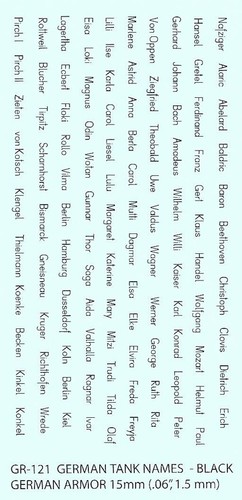 Nafziger Alaric Abelard Baldric Baron Beethoven Christoph Clovis Dietrich Erich
Hansel Gretel Ferdinand Franz Gerl Klaus Handel Wolfgang Mozart Helmut Paul
Gerhard Johann Bach Amadeus Wilhelm Willi Kaiser Karl Konrad Leopold Peter
Von Oppen Ziegfried Theobald Uwe Valdus Wagner Werner George Ruth Rita
Marlene Astrid Anna Berta Carol Multi Dagmar Elsa Elke Elvira Fredo Freyja
Lilli Ilse Karla Carol Liesel Lulu Margaret Katerine Mary Mitzi Trudi Tilda Olaf
Eisa Loki Magnus Odin Wotan Gunnar Thor Saga Aida Valhalla Ragnar Ivar
Lagertha Ecbert Floki Rollo Vilma Berlin Hamburg Dusseldorf Koln Berlin Kiel
Rottweil Blucher Tirpitz Scharnhorst Bismarck Gneisneau Kruger Richthofen Wrede
Pirch I Pirch II Zieten von Kolsch Klengel Thielmann Koenke Becken Kinkel Konkel
GR-121 GERMAN TANK NAMES - BLACK
GERMAN ARMOR 15mm (.06",1.5 mm)